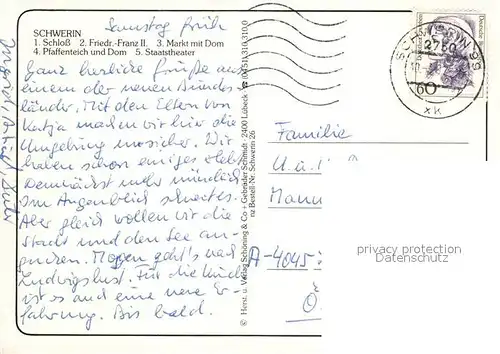 Samstag früh
SCHWERIN
1. Schloß 2. Friedr.-Franz II. 3. Markt mit Dom
4. Pfaffenteich und Dom 5. Staatstheater
Ganz herzliche Grüße aus
einem der neuen Bundes-
länder. Mit den Eltern von
Katja machen wir hier die
Umgebung unsicher. Wir
haben schon einiges
Demnächst mehr mündlich.
Im Augenblick
Aber gleich wollen wir die
Stadt und den See an-
gucken. Morgen geht's nach
Ludwigslust. Für die
ist es auch eine neue Er-
fahrung. Bis bald.
© Herst. u. Verlag Schöning & Co + Gebrüder Schmidt · 2400 Lübeck · (0451) 310 310 0
nz Bestell-Nr. Schwerin 26
SCHWERIN 99
2750
xk
60
Deutsche
Familie
U. u.
Mann
A-4045
Ö
privacy protection
Datenschutz